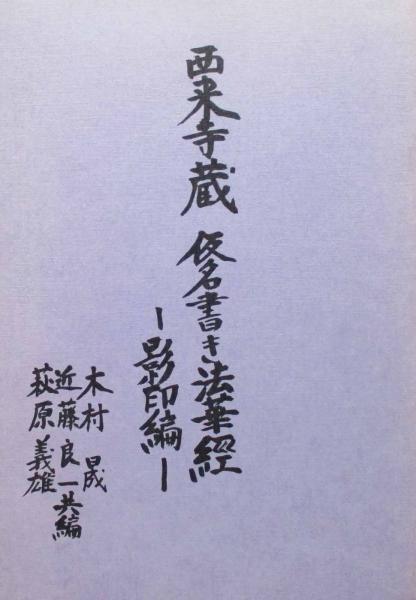 西来寺蔵 仮名書き法華經
ー影印編ー
木村 晟
近藤良一共編
萩原義雄